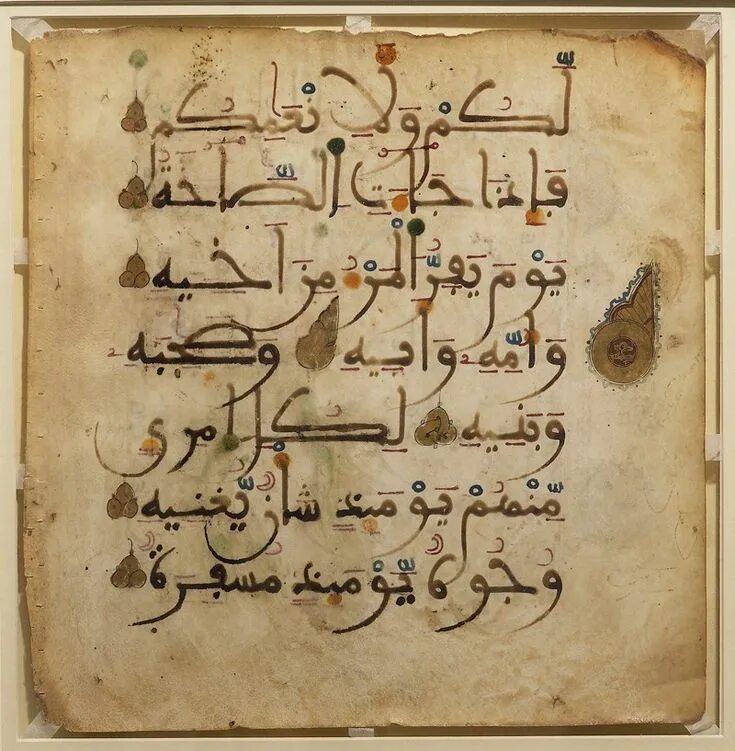 لَّكُمْ وَلِأَنْعَٰمِكُمْ
فَإِذَا جَآءَتِ الصَّآخَّةُ
يَوْمَ يَفِرُّ الْمَرْءُ مِنْ أَخِيهِ
وَأُمِّهِ وَأَبِيهِ وَصَٰحِبَتِهِ
وَبَنِيهِ لِكُلِّ امْرِئٍ
مِّنْهُمْ يَوْمَئِذٍ شَأْنٌ يُغْنِيهِ
وُجُوهٌ يَوْمَئِذٍ مُّسْفِرَةٌ